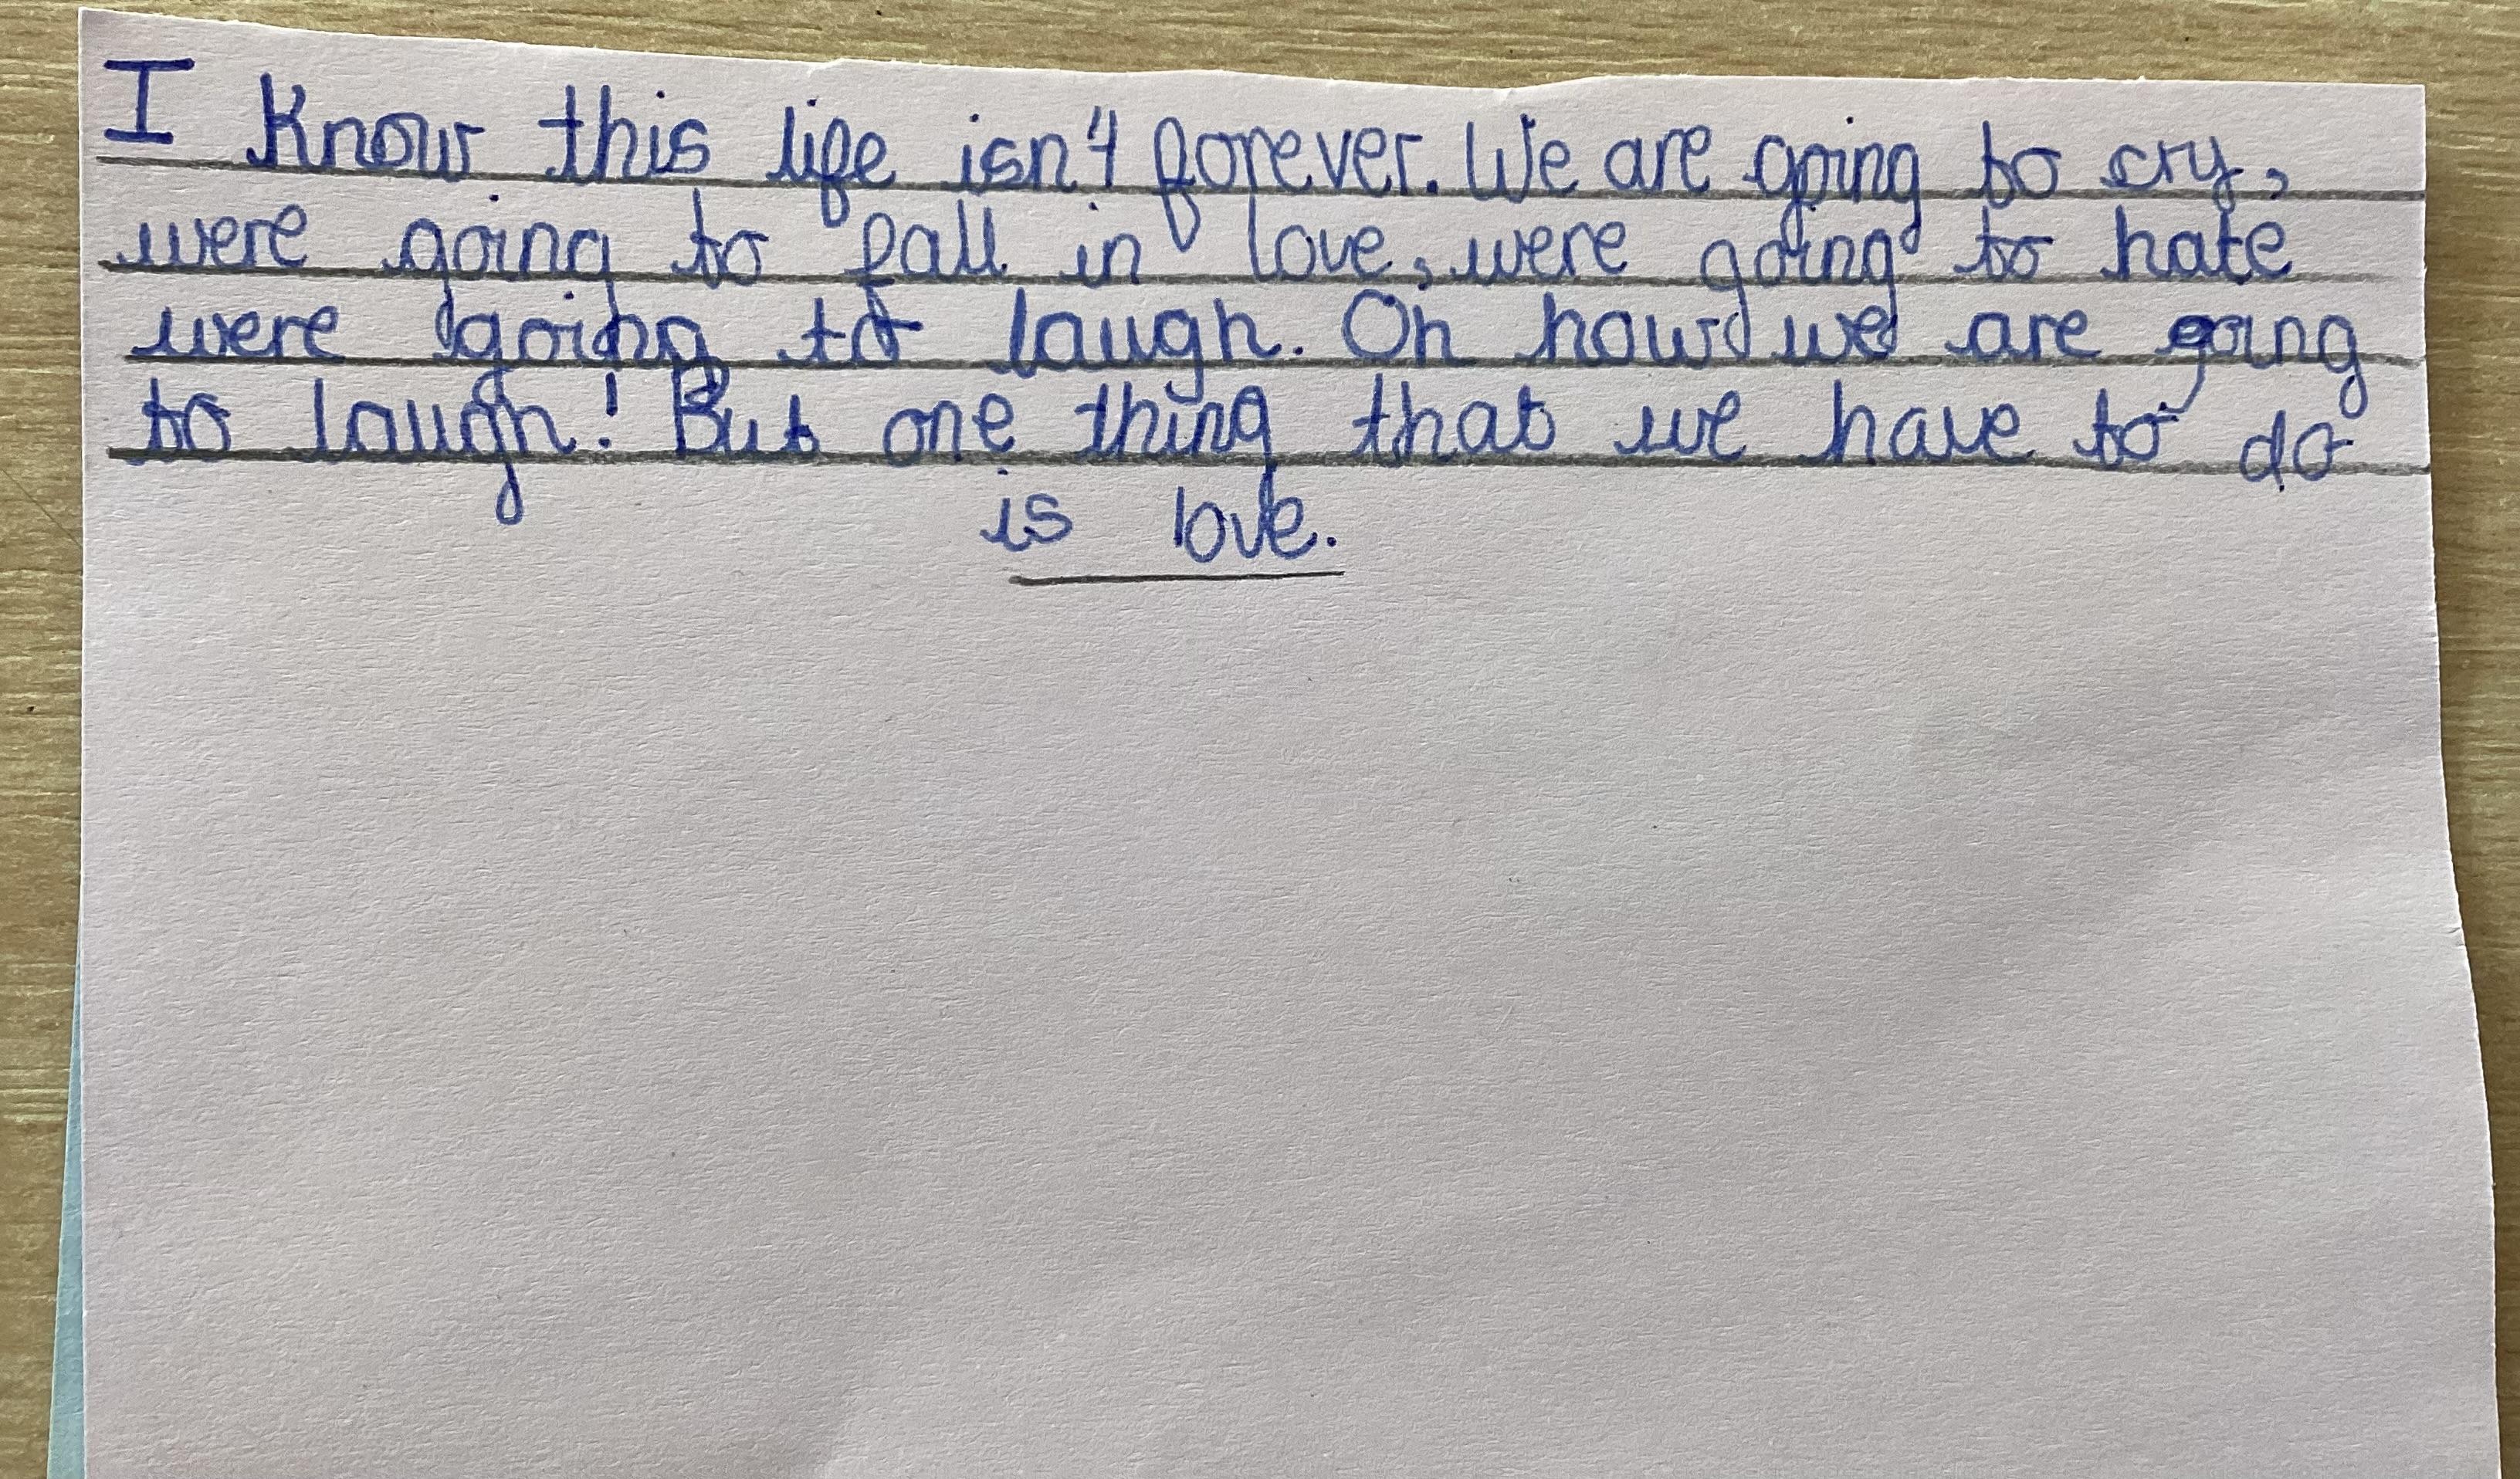 I know this life isn't forever. We are going to cry,
were going to fall in love, were going to hate
were going to laugh. Oh how we are going
to laugh! But one thing that we have to do
is love.